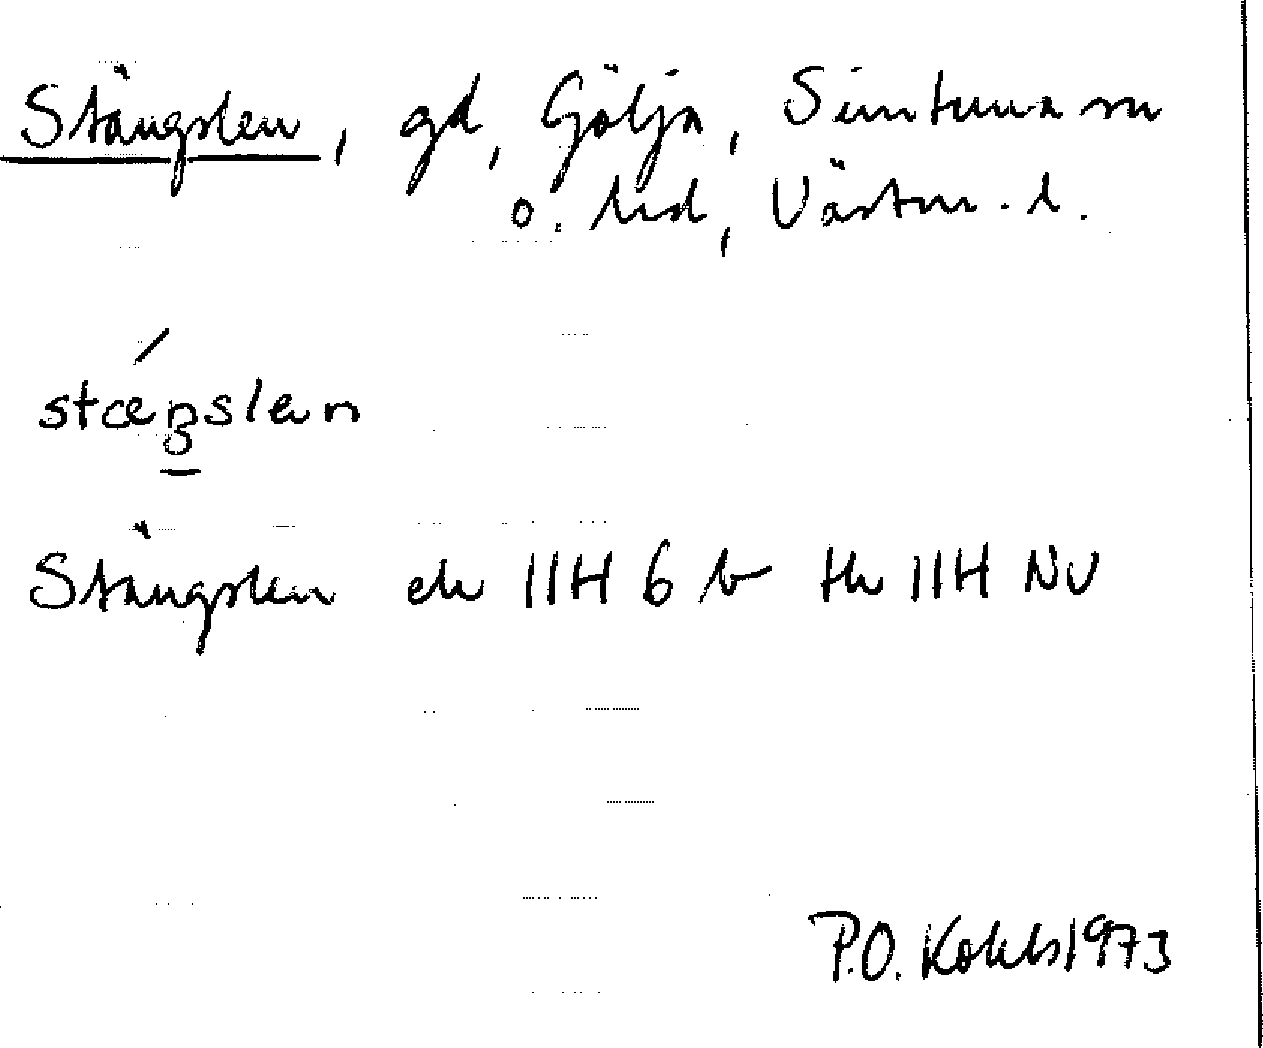 Stängslen, gd, Gölja, Simtuna sn
o. hd, Västm. l.
stæŋslen
Stängslen ek 11H 6 b tk 11H NV
P.O. 1973